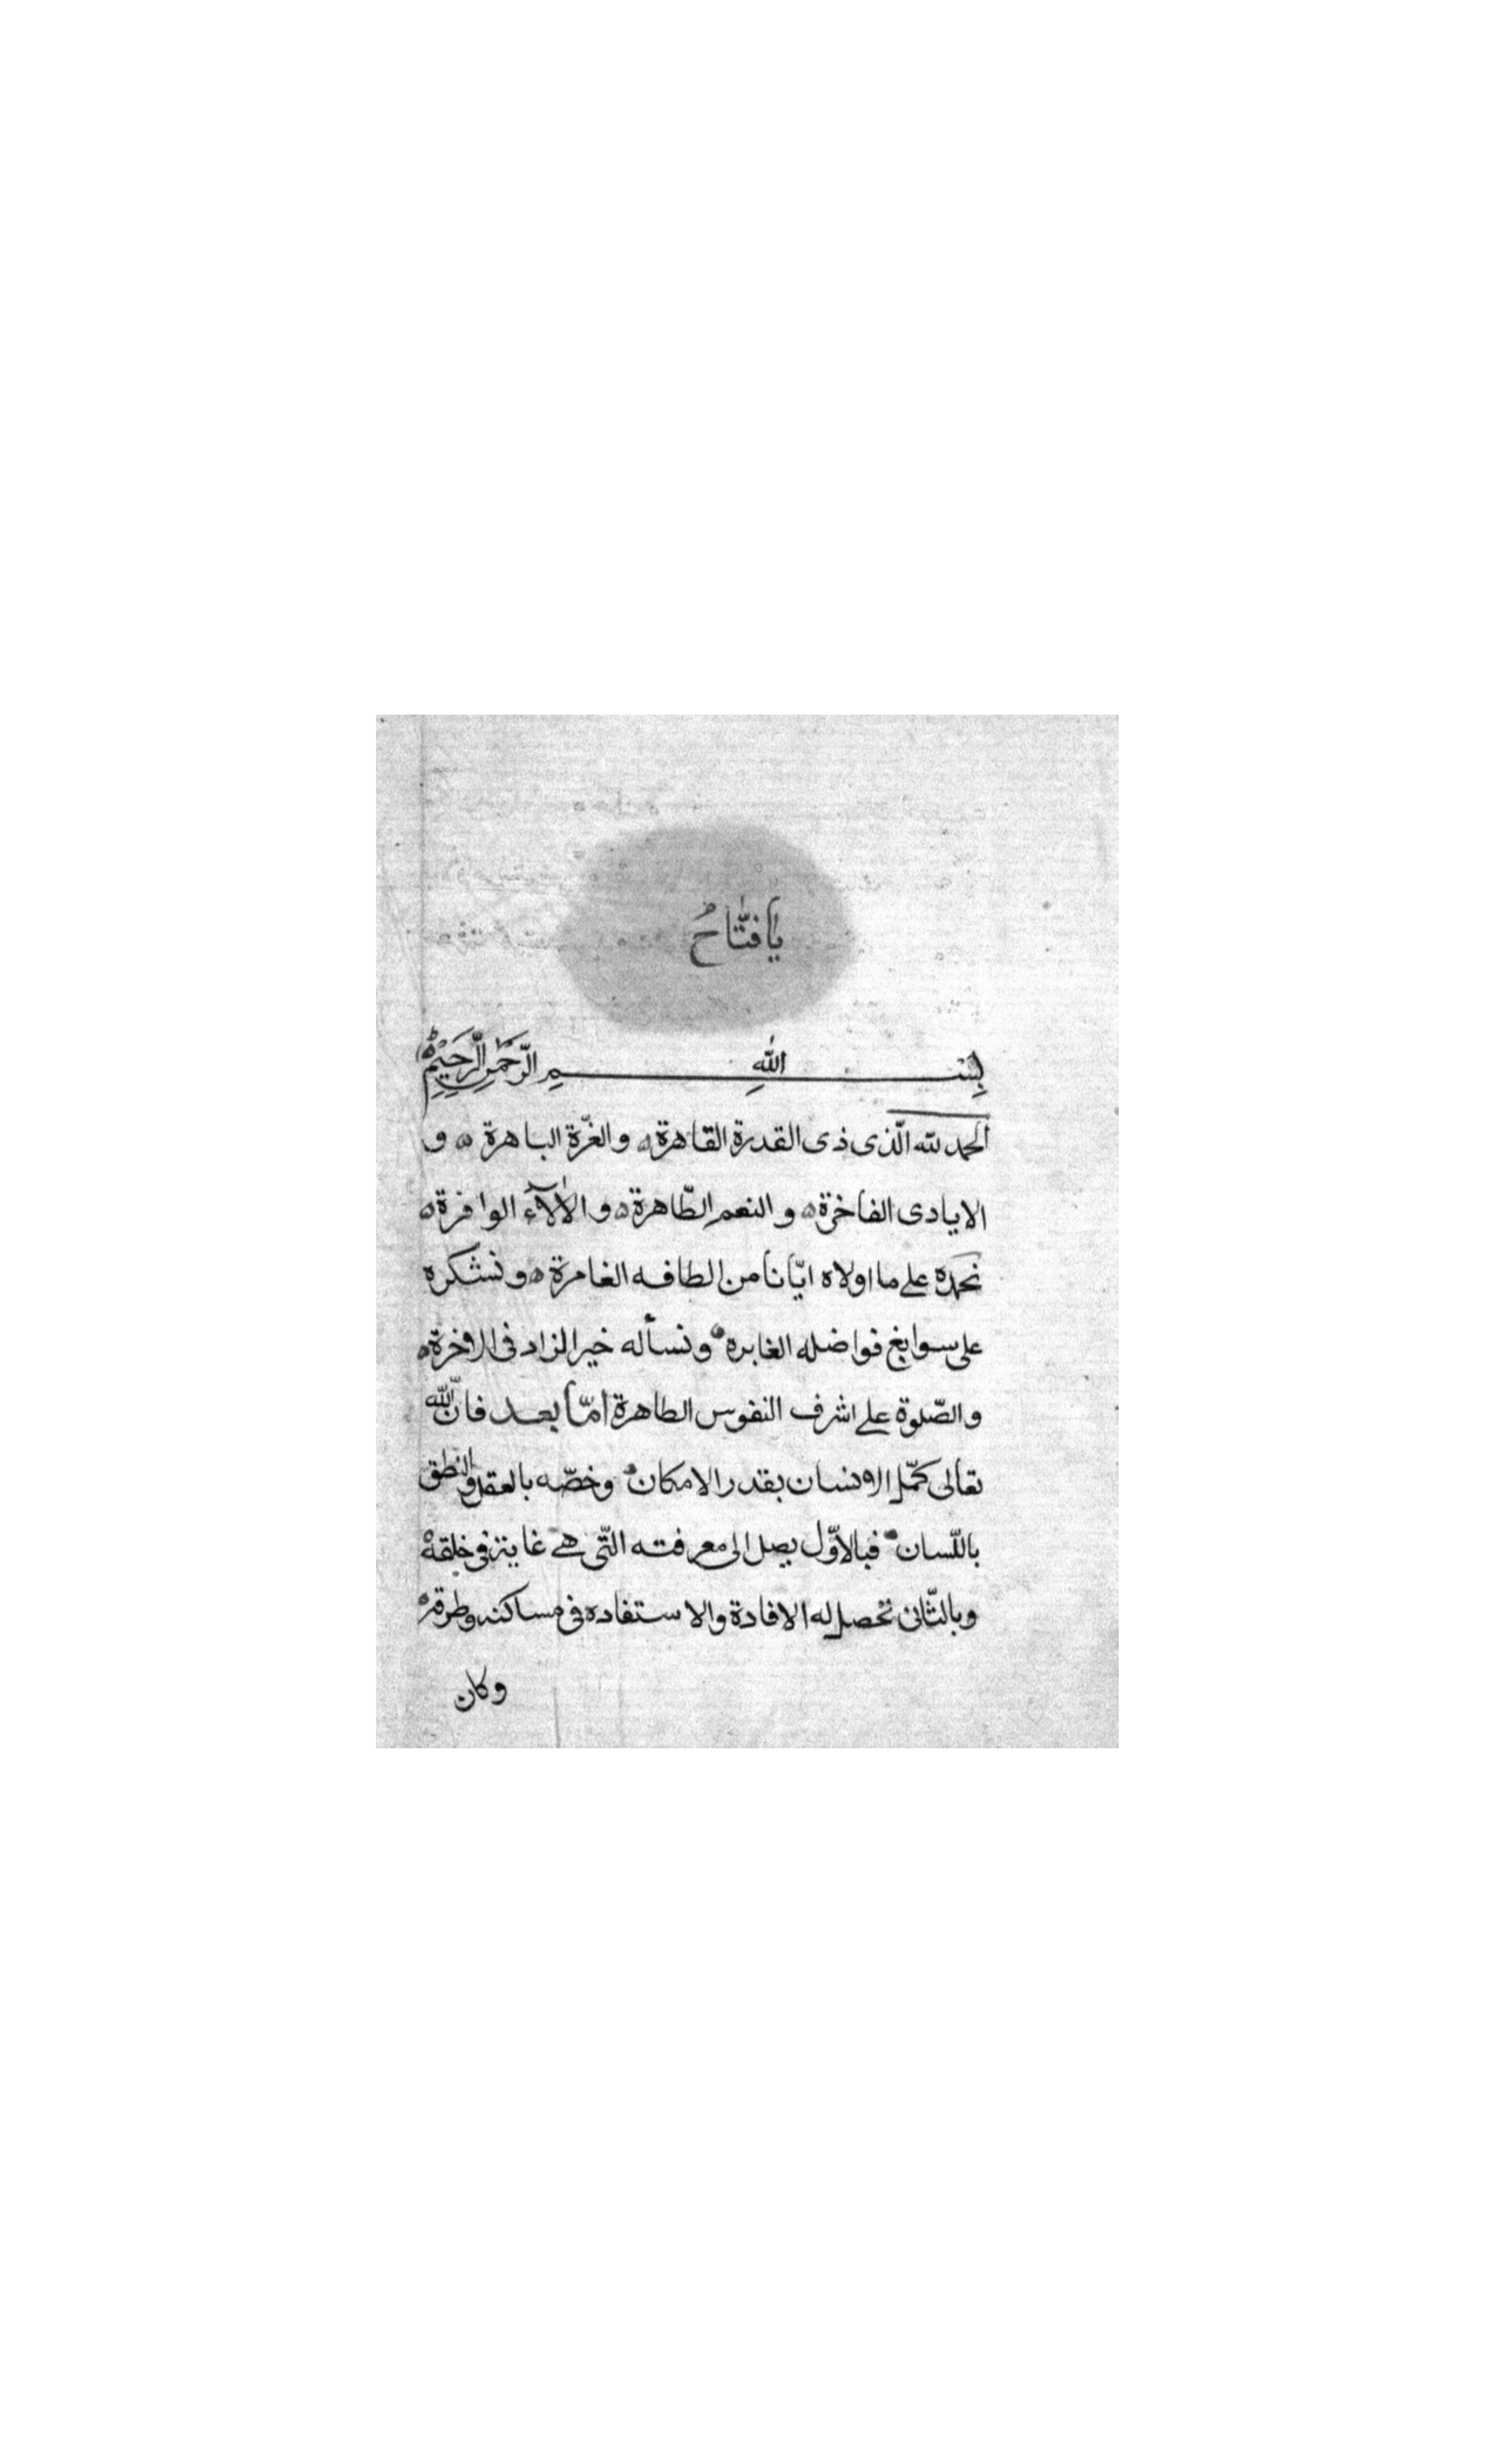 يا فتّاحُ
بِسْمِ اللهِ الرَّحْمٰنِ الرَّحِيْمِ
الحمد لله الّذى ذى القدرة القاهرة ه والغرّة الباهرة ه و
الايادى الفاخرة ه و النعم الظّاهرة ه و الاٰلآء الوافرة ه
نحمده على ما اولاه ايّانا من الطافه الغامرة ه و نشكره
على سوابغ فواضله الغابره ه و نسأله خير الزاد فى الاخرة ه
والصّلوة على اشرف النفوس الطاهرة امّا بعد فانّ اللّه
تعالى كمّل الانسان بقدر الامكان ه وخصّه بالعقل والنطق
باللّسان ه فبالاوّل يصل الى معرفته الّتى هى غاية فى خلقه ه
وبالثّانى تحصل له الافادة والاستفاده فى مساكنه وطرقه ه
وكان